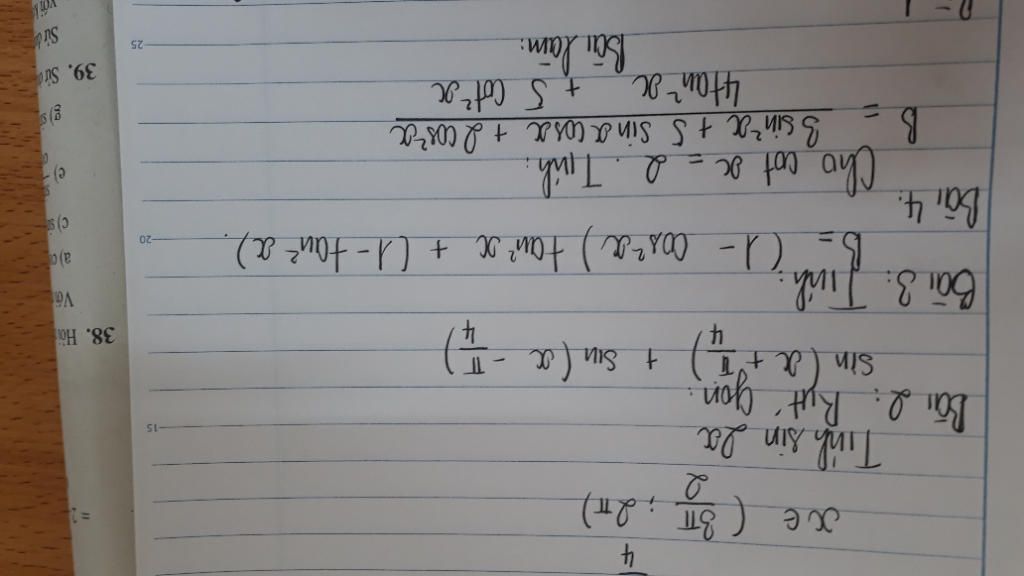 4
x ∈ (3π/2 ; 2π)
Tính sin 2x
15
Bài 2: Rút gọn:
sin (x + π/4) + sin (x - π/4)
Bài 3: Tính:
B = (1 - cos²x) tan²x + (1 - tan²x).
20
Bài 4:
Cho cot x = 2. Tính:
B = (3 sin²x + 5 sin x cos x + 2 cos²x) / (4 tan²x + 5 cot²x)
Bài làm:
25
38.
a)
c)
e)
g)
39.